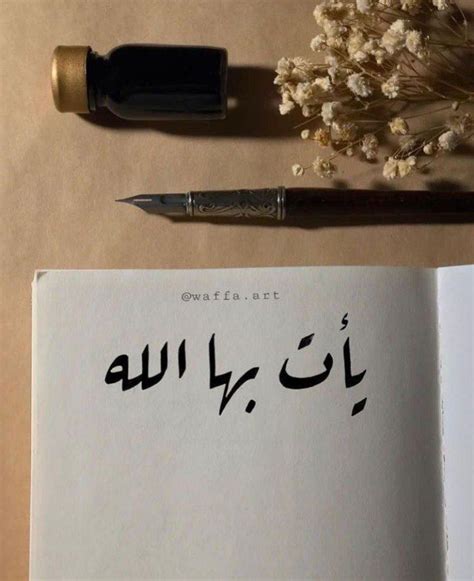 @waffa.art
يأت بها الله